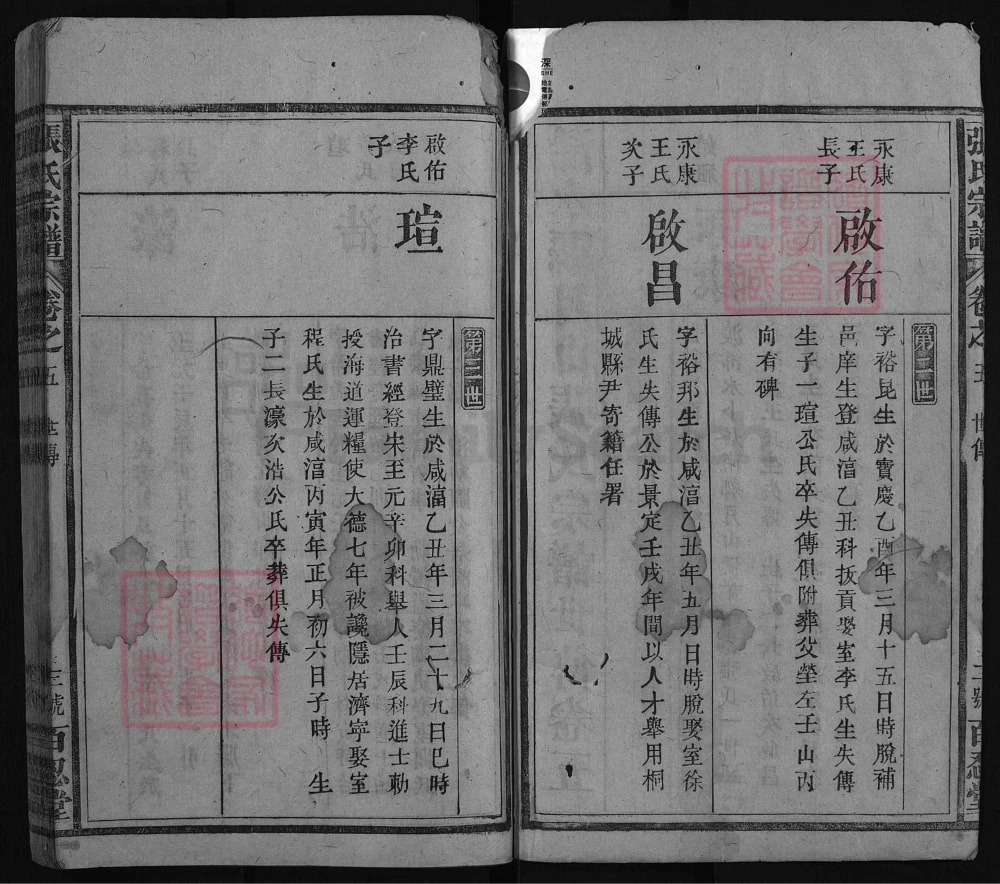 張氏宗譜
卷之五
世傳
百忍堂
永康
王氏
長子
啟佑
第二世
字裕昆生於寶慶乙酉年三月十五日時脫補
邑庠生登咸淳乙丑科拔貢娶室李氏生失傳
生子一瑄公氏卒失傳俱附葬父塋左壬山丙
向有碑
永康
王氏
次子
啟昌
字裕那生於咸淳乙丑年五月日時脫娶室徐
氏生失傳公於景定壬戌年間以人才舉用桐
城縣尹寄籍任署
啟佑
李氏
子
瑄
第三世
字鼎璧生於咸淳乙丑年三月二十九日巳時
治書經登宋至元辛卯科舉人壬辰科進士勅
授海道運糧使大德七年被讒隱居濟寧娶室
程氏生於咸淳丙寅年正月初六日子時 生
子二長濠次浩公氏卒葬俱失傳
張氏宗譜
卷之五
世傳
三號
百忍堂